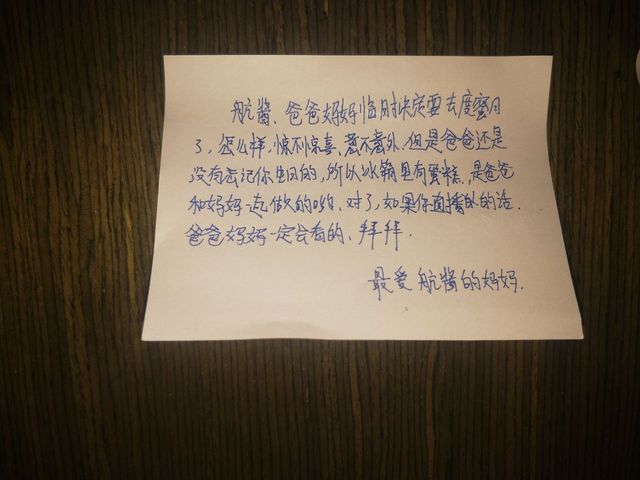 航酱、爸爸妈妈临时决定要去度蜜月
了,怎么样,惊不惊喜、意不意外,但是爸爸还是
没有忘记你生日的,所以冰箱里有蛋糕,是爸爸
和妈妈一起做的哟、对了,如果你直播的话.
爸爸妈妈一定会看的、拜拜.
最爱航酱的妈妈.